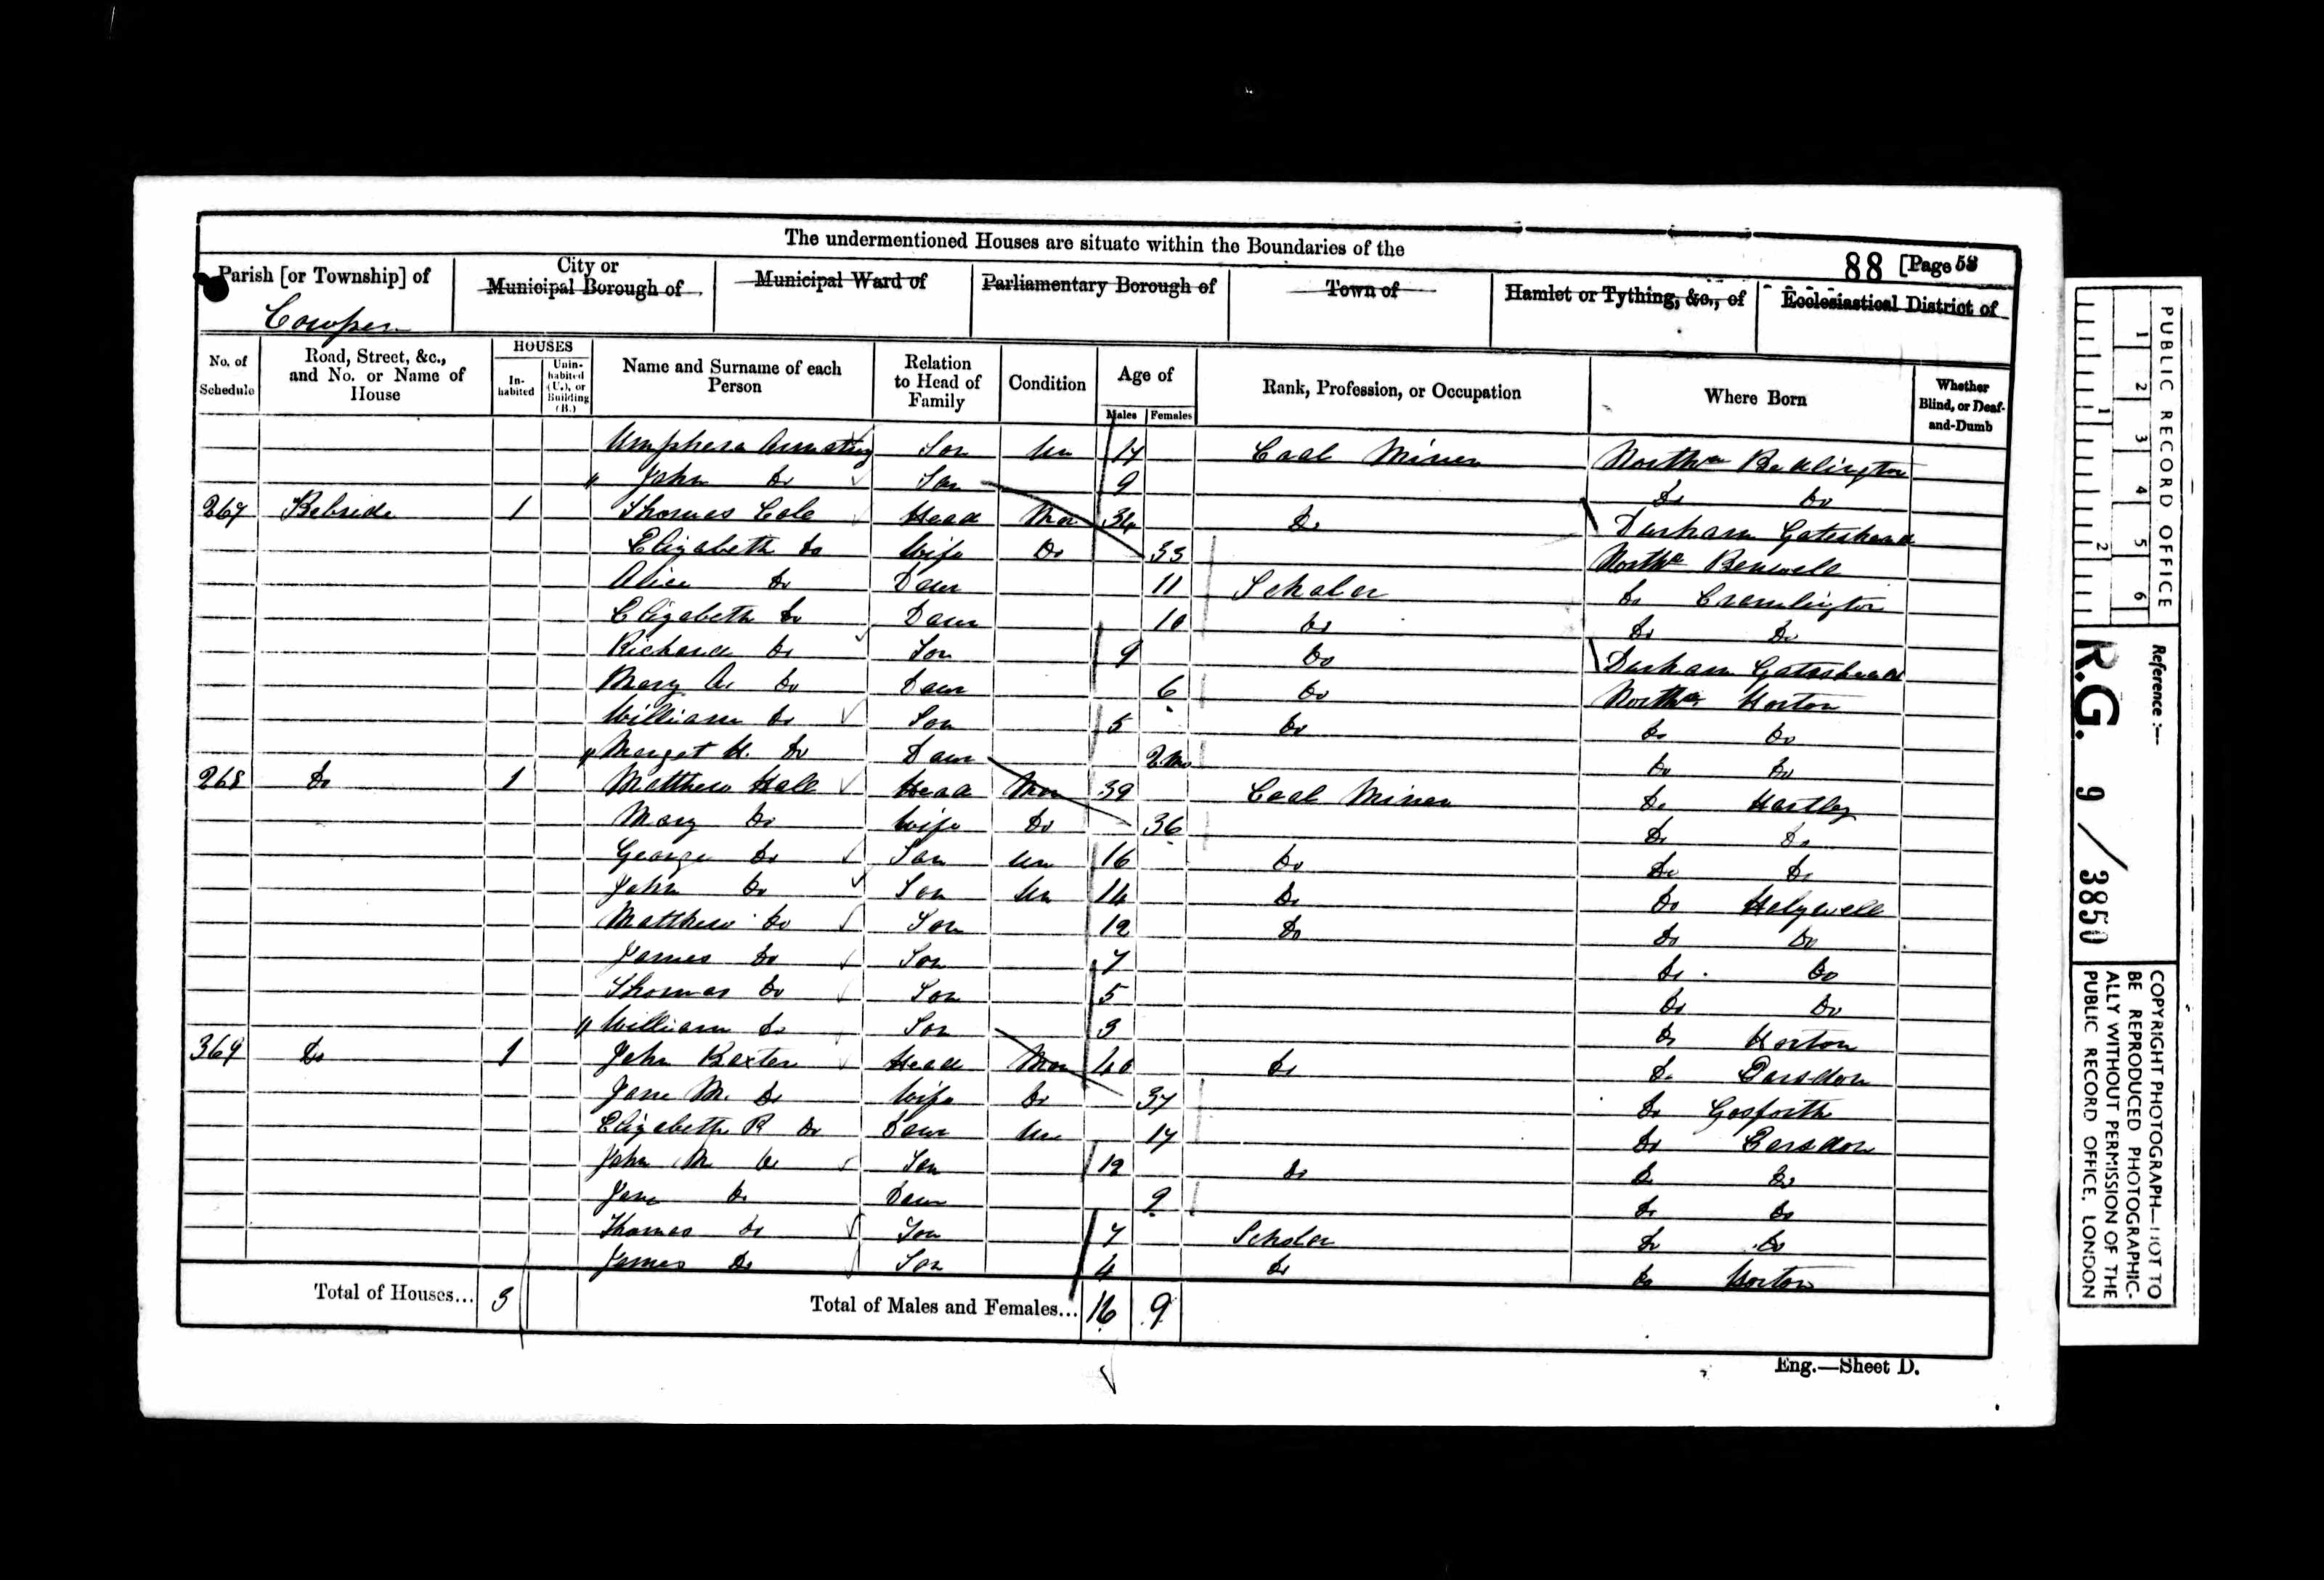 The undermentioned Houses are situate within the Boundaries of the
88 [Page 58
Parish [or Township] of
City or Municipal Borough of
Municipal Ward of
Parliamentary Borough of
Town of
Hamlet or Tything, &c., of
Ecclesiastical District of
Cowpen
No. of Schedule
Road, Street, &c., and No. or Name of House
HOUSES
In-habited
Unin-habited (U.), or Building (B.)
Name and Surname of each Person
Relation to Head of Family
Condition
Age of
Males
Females
Rank, Profession, or Occupation
Where Born
Whether Blind, or Deaf-and-Dumb
Umphera Armstrong Son Un 17 Coal Miner North Bedlington
" John Do Son 9 Do Do
267 Bebside 1 Thomas Cole Head Mar 34 Do Durham Gateshead
Elizabeth Do Wife Do 33 North Benwell
Alice Do Daur 11 Scholar Do Cramlington
Elizabeth Do Daur 10 Do Do Do
Richard Do Son 9 Do Durham Gateshead
Mary A. Do Daur 6 Do North Horton
William Do Son 5 Do Do Do
" Margat H. Do Daur 2 Mo Do Do
268 Do 1 Matthew Hall Head Mar 39 Coal Miner Do Hartley
Mary Do Wife Do 36 Do Do
George Do Son Un 16 Do Do Do
John Do Son Un 14 Do Do Holywell
Matthew Do Son 12 Do Do Do
James Do Son 7 Do Do
Thomas Do Son 5 Do Do
" William Do Son 3 Do Horton
369 Do 1 John Baxter Head Mar 40 Do Do Earsdon
Jane M. Do Wife Do 37 Do Gosforth
Elizabeth R Do Daur Un 17 Do Earsdon
John M Do Son 12 Do Do Do
Jane Do Daur 9 Do Do
Thomas Do Son 7 Scholar Do Do
James Do Son 4 Do Do Horton
Total of Houses... 3
Total of Males and Females... 16 9
Eng.—Sheet D.
PUBLIC RECORD OFFICE
1 2 3 4 5 6
1 2
Reference :—
R.G. 9 / 3850
COPYRIGHT PHOTOGRAPH—NOT TO
BE REPRODUCED PHOTOGRAPHIC-
ALLY WITHOUT PERMISSION OF THE
PUBLIC RECORD OFFICE, LONDON